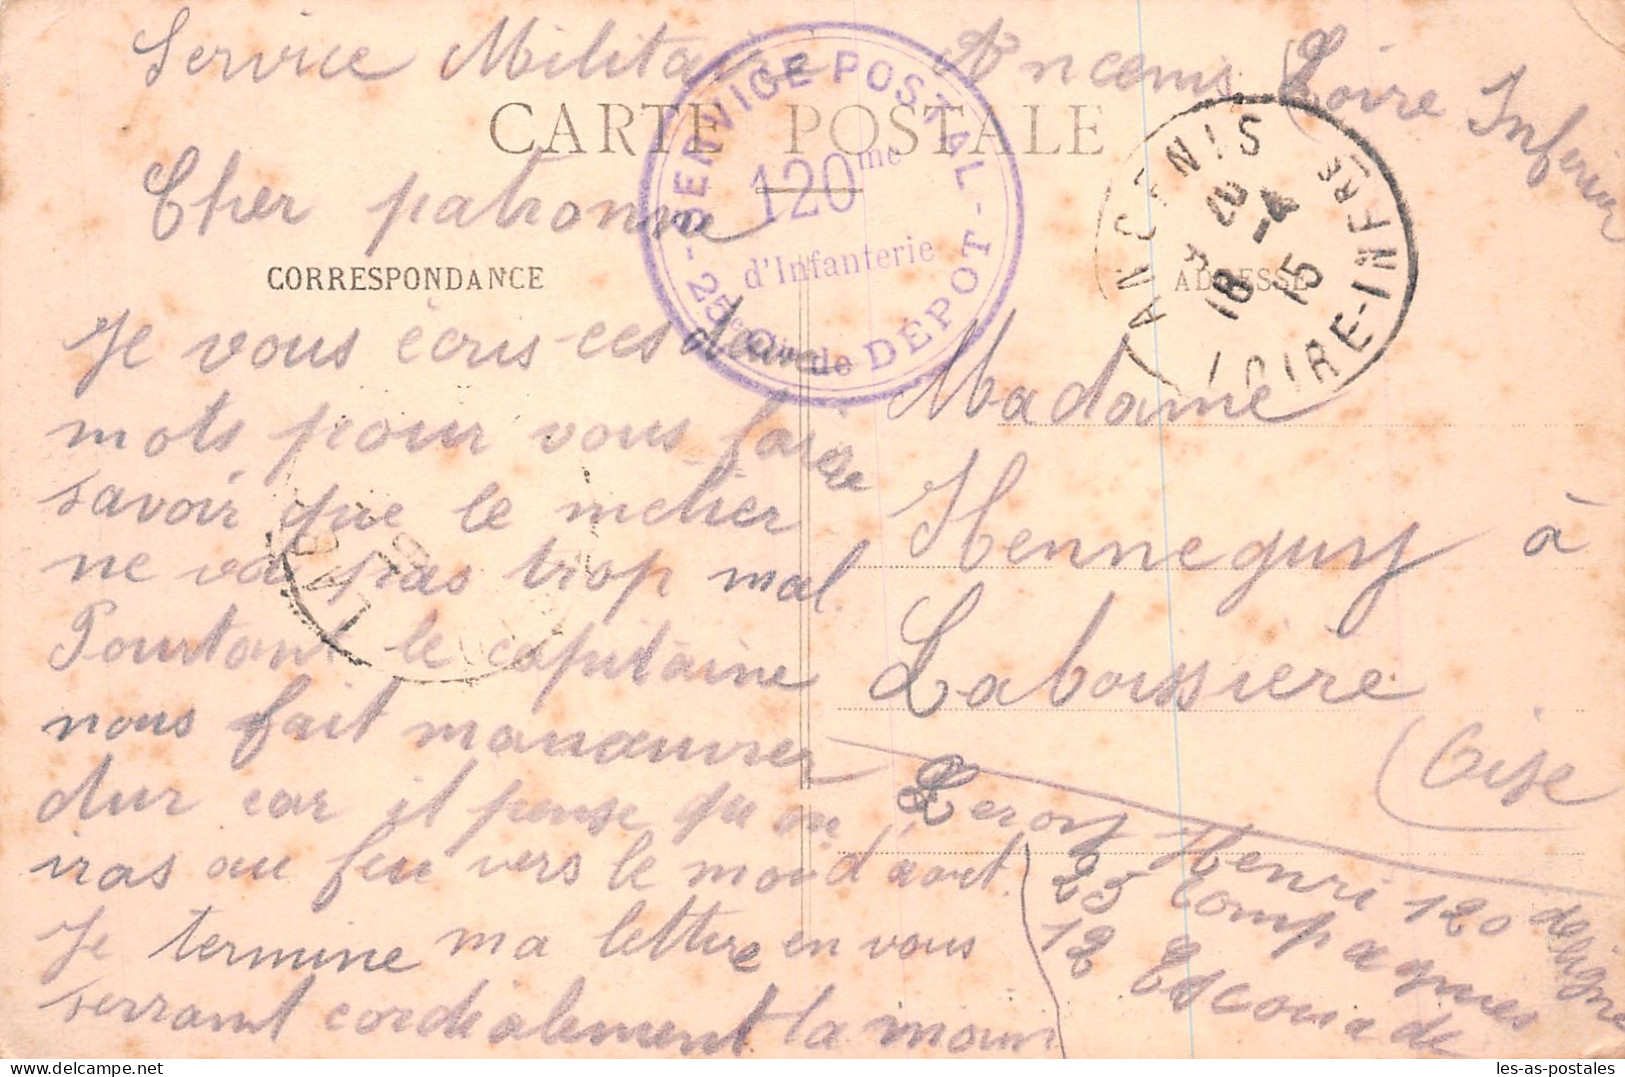 Service Militaire Ancenis (Loire Inferieur
CARTE POSTALE
SERVICE POSTAL
120me
d'Infanterie
25e Cie de DÉPOT
ANCENIS
LOIRE-INFRE
18 20
-4
15
Cher patronne
CORRESPONDANCE
ADRESSE
Je vous écris ces deux
mots pour vous faire
savoir que le metier
ne va pas trop mal.
Pourtant le capitaine
nous fait manœuvrer
dur car il pense qu on
iras au feu vers le moi d'aout.
Je termine ma lettre en vous
serrant cordialement la main
Madame
Hennequy à
Laboissière
(Oise
Leroy Henri 120 de ligne
25 Compagnies
12 Escouade
LA B
les-as-postales